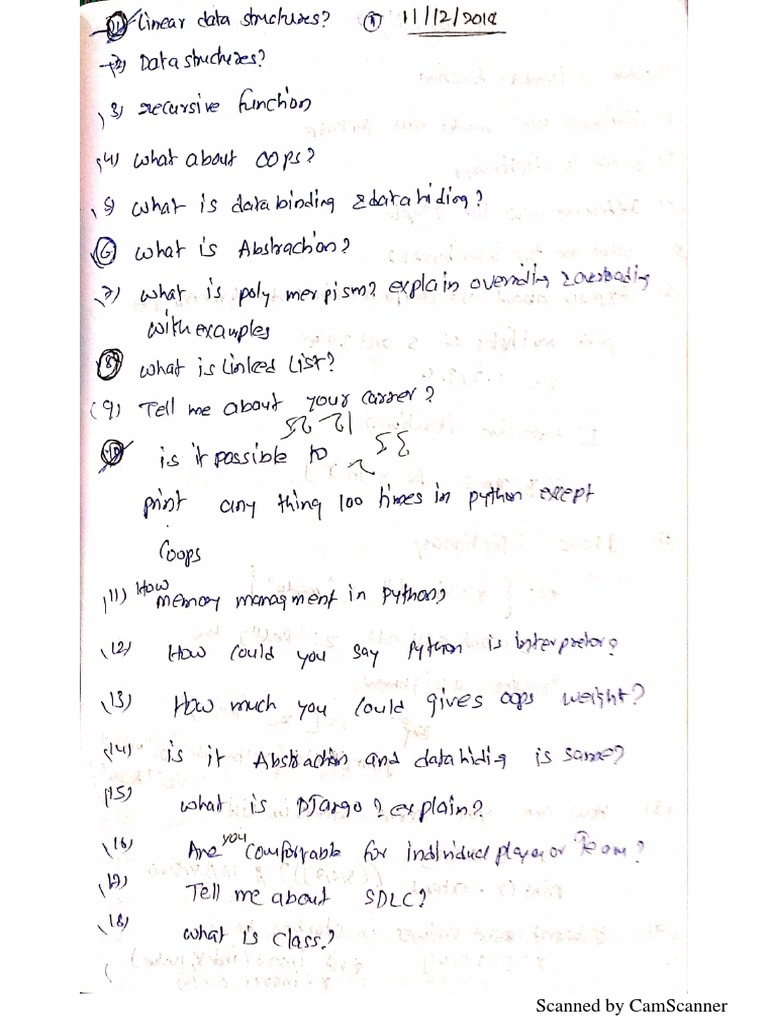 1) Linear data structures? ① 11/12/2018
2) Data structures?
3) recursive function
4) what about oops?
5) what is data binding & data hiding?
6 what is Abstraction?
7) what is poly merpism? explain overriding & overloading
with examples
8 what is linked list?
(9) Tell me about your carrer?
10 is it possible to
print any thing 100 times in python except
loops
11) How memory managment in Python?
12) How could you say Python is interpretor?
13) How much you could gives oops weight?
14) is it Abstraction and data hiding is same?
15) what is DJango? explain?
16) Are you comfortable for individual player or Team?
17) Tell me about SDLC?
18) what is class?
Scanned by CamScanner